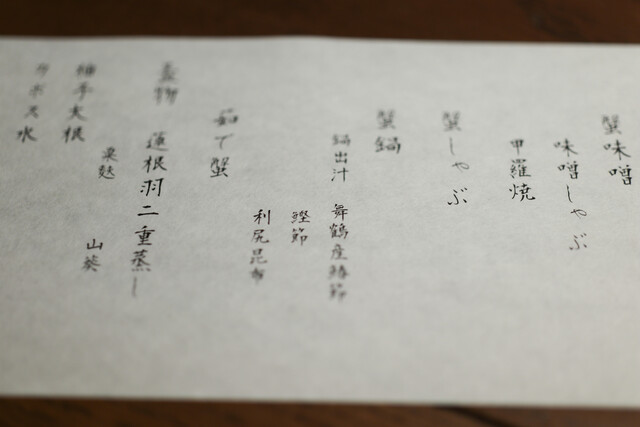 蟹味噌
味噌しゃぶ
甲羅焼
蟹しゃぶ
蟹鍋
鍋出汁 舞鶴産鰆節
鰹節
利尻昆布
茹で蟹
蓋物
蓮根羽二重蒸し
粟麩 山葵
柚子大根
カボス水